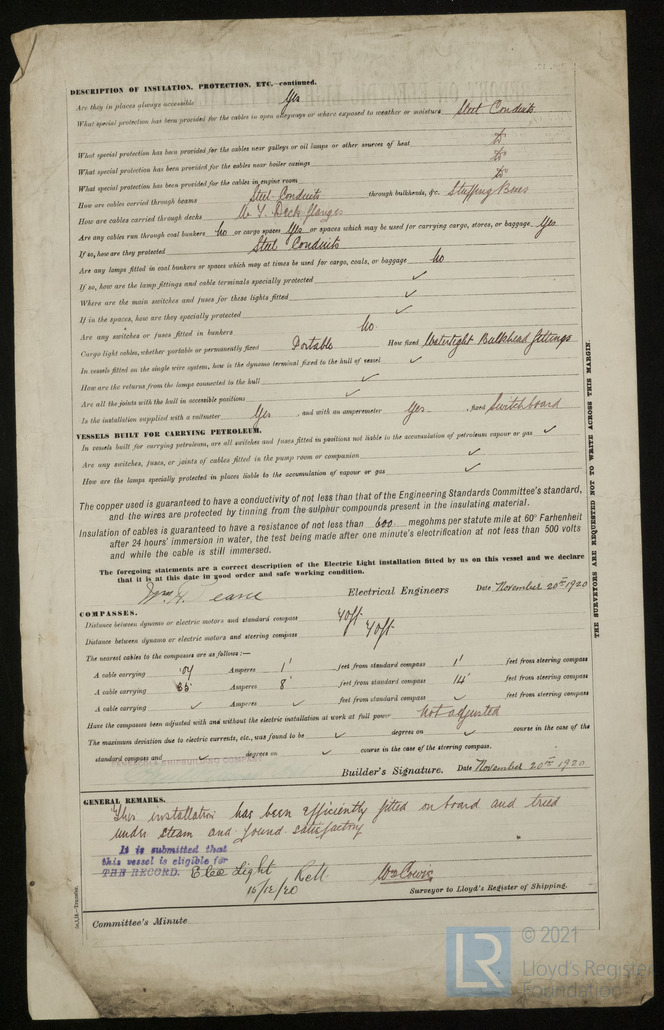 DESCRIPTION OF INSULATION, PROTECTION, ETC.—continued.
Are they in places always accessible Yes
What special protection has been provided for the cables in open alleyways or where exposed to weather or moisture Steel Conduits
What special protection has been provided for the cables near galleys or oil lamps or other sources of heat do
What special protection has been provided for the cables near boiler casings do
What special protection has been provided for the cables in engine room do
How are cables carried through beams Steel Conduits through bulkheads, &c. Stuffing Boxes
How are cables carried through decks W. T. Deck flanges
Are any cables run through coal bunkers No or cargo spaces Yes or spaces which may be used for carrying cargo, stores, or baggage Yes
If so, how are they protected Steel Conduits
Are any lamps fitted in coal bunkers or spaces which may at times be used for cargo, coals, or baggage No
If so, how are the lamp fittings and cable terminals specially protected ✓
Where are the main switches and fuses for these lights fitted ✓
If in the spaces, how are they specially protected ✓
Are any switches or fuses fitted in bunkers No
Cargo light cables, whether portable or permanently fixed Portable How fixed Watertight Bulkhead fittings
In vessels fitted on the single wire system, how is the dynamo terminal fixed to the hull of vessel ✓
How are the returns from the lamps connected to the hull ✓
Are all the joints with the hull in accessible positions ✓
Is the installation supplied with a voltmeter Yes, and with an amperemeter Yes, fixed Switchboard
VESSELS BUILT FOR CARRYING PETROLEUM.
In vessels built for carrying petroleum, are all switches and fuses fitted in positions not liable to the accumulation of petroleum vapour or gas ✓
Are any switches, fuses, or joints of cables fitted in the pump room or companion ✓
How are the lamps specially protected in places liable to the accumulation of vapour or gas ✓
The copper used is guaranteed to have a conductivity of not less than that of the Engineering Standards Committee's standard,
and the wires are protected by tinning from the sulphur compounds present in the insulating material.
Insulation of cables is guaranteed to have a resistance of not less than 600 megohms per statute mile at 60° Farhenheit
after 24 hours' immersion in water, the test being made after one minute's electrification at not less than 500 volts
and while the cable is still immersed.
The foregoing statements are a correct description of the Electric Light installation fitted by us on this vessel and we declare
that it is at this date in good order and safe working condition.
Pearce Electrical Engineers Date November 20th 1920
COMPASSES.
Distance between dynamo or electric motors and standard compass 40ft
Distance between dynamo or electric motors and steering compass 40ft
The nearest cables to the compasses are as follows:—
A cable carrying Amperes 1' feet from standard compass 1' feet from steering compass
A cable carrying Amperes 8' feet from standard compass 14' feet from steering compass
A cable carrying ✓ Amperes ✓ feet from standard compass ✓ feet from steering compass
Have the compasses been adjusted with and without the electric installation at work at full power Not adjusted
The maximum deviation due to electric currents, etc., was found to be ✓ degrees on ✓ course in the case of the
standard compass and ✓ degrees on ✓ course in the case of the steering compass.
SHIPBUILDING COMPANY
Builder's Signature. Date November 20th 1920
GENERAL REMARKS.
This installation has been efficiently fitted on board and tried
under steam and found satisfactory
It is submitted that
this vessel is eligible for
THE RECORD. Elec Light
15/12/20
Surveyor to Lloyd's Register of Shipping.
Committee's Minute
THE SURVEYORS ARE REQUESTED NOT TO WRITE ACROSS THIS MARGIN.
LR
© 2021
Lloyd's Register
Foundation